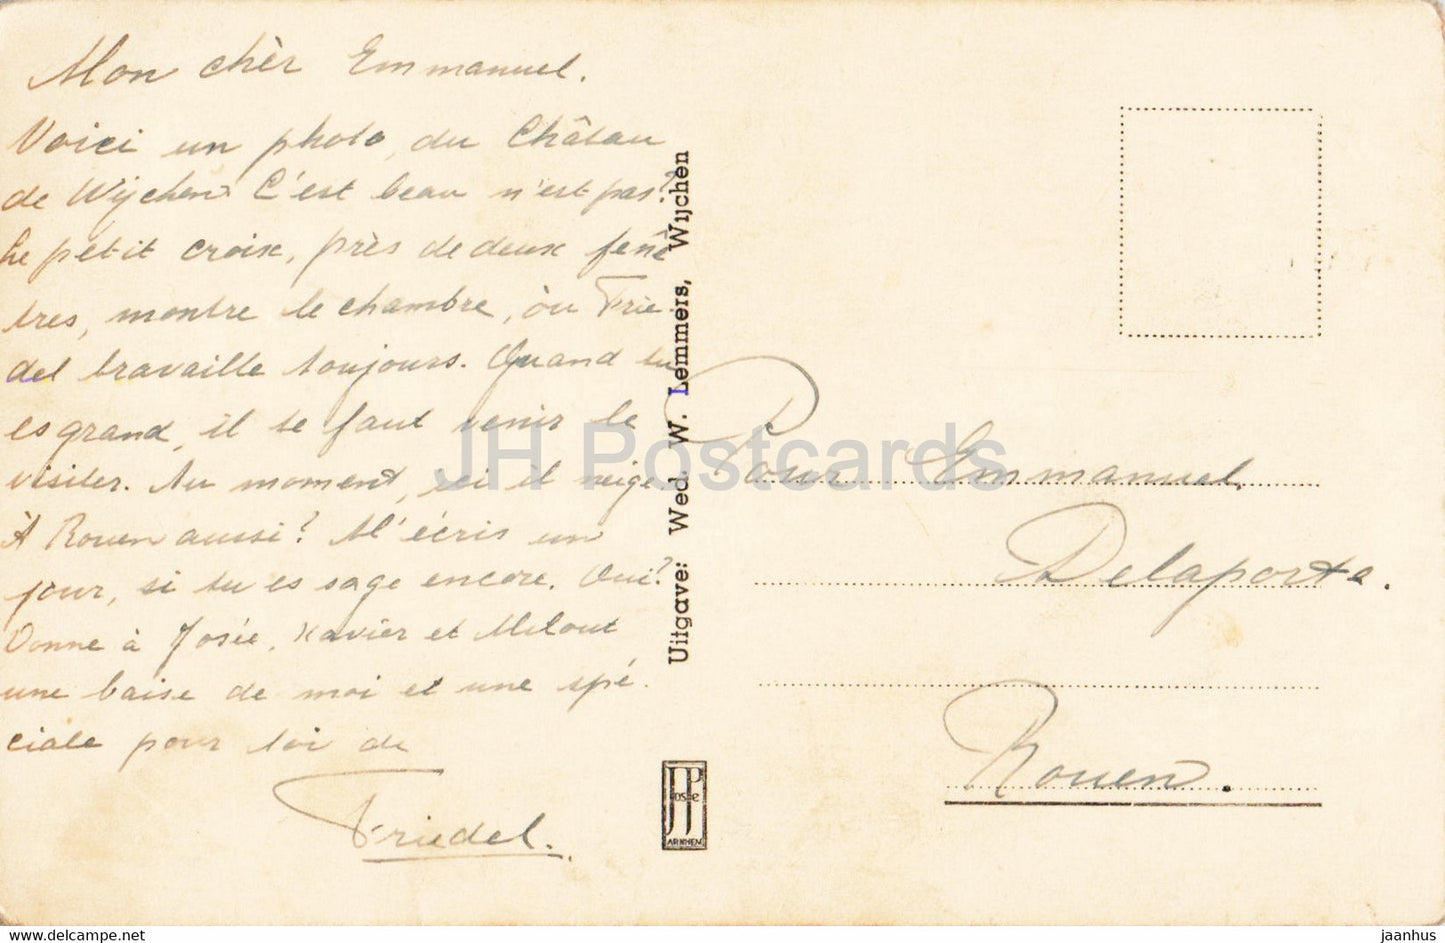 Mon chèr Emmanuel.
Voici un photo, du Châtau
de Wijchen C'est beau n'est pas?
Le petit croix, près de deux fenê
tres, montre le chambre, òu Frie-
del travaille toujours. Quand tu
es grand, il te faut venir le
visiter. Au moment, ici il neige
À Rouen aussi? M'écris un
jour, si tu es sage encore. Oui?
Donne à Josée, Xavier et Milout
une baise de moi et une spé.
ciale pour toi de
Friedel.
Uitgave: Wed. W. Lemmers, Wijchen
JosPe
ARNHEM
Pour Emmanuel
Delaporte.
Rouen.
JH Postcards
www.delcampe.net
jaanhus